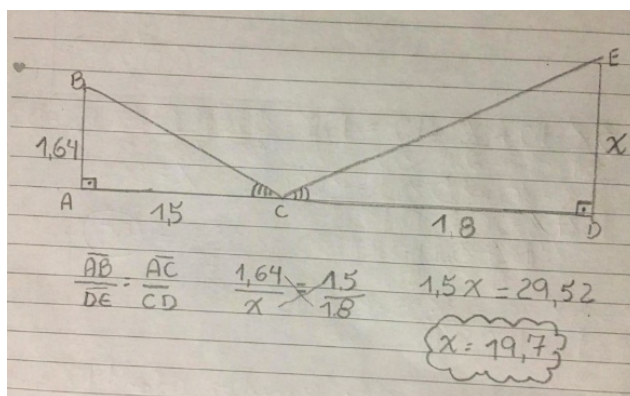 B
E
1,64
x
A
1,5
C
1,8
D
AB/DE = AC/CD
1,64/x = 1,5/18
1,5x = 29,52
x = 19,7